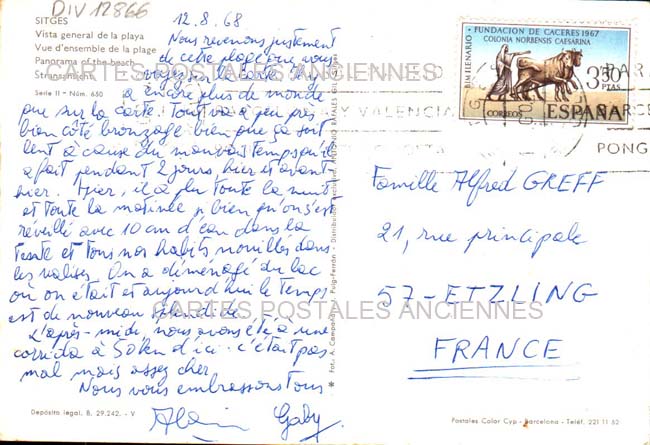 DIV 12866
SITGES
Vista general de la playa
Vue d'ensemble de la plage
Panorama of the beach
Strandansicht
Serie II - Núm. 650
12.8.68
Nous revenons justement
de cette plage que vous
voyez sur la carte. Il y
a encore plus de monde
que sur la carte. Tout va à peu près
bien côté bronzage bien que ça soit
lent à cause du mauvais temps qu'il
a fait pendant 2 jours, hier et avant
hier. Hier, il a plu toute la nuit
et toute la matinée si bien qu'on s'est
réveillé avec 10 cm d'eau dans la
tente et tous nos habits mouillés dans
les valises. On a déménagé du lac
où on était et aujourd'hui le temps
est de nouveau splendide
L'après-midi, nous avons été à une
corrida à 50 km d'ici. c'était pas
mal mais assez cher
Nous vous embrassons tous
Alain Gaby
Depósito legal, B. 29.242. - V
Fot. A. Campañá y J. Puig-Ferrán - Distribución
BIMILENARIO
FUNDACION DE CACERES 1967
COLONIA NORBENSIS CAESARINA
3,50
PTAS
CORREOS
ESPAÑA
VALENCIA
PONG
Famille Alfred GREFF
21, rue principale
57-ETZLING
FRANCE
Postales Color Cyp - Barcelona - Teléf. 221 11 62
CARTES POSTALES ANCIENNES
CARTES POSTALES ANCIENNES